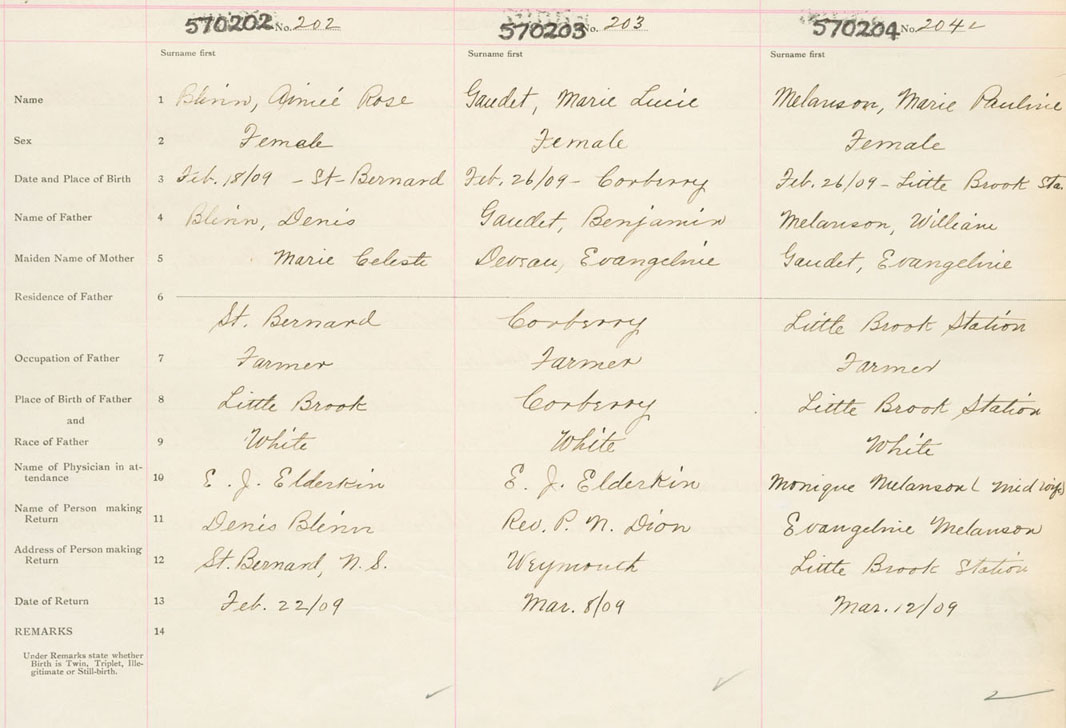 570202 No. 202 570203 No. 203 570204 No. 204
Surname first Surname first Surname first
Name 1 Blinn, Aimée Rose Gaudet, Marie Lucie Melanson, Marie Pauline
Sex 2 Female Female Female
Date and Place of Birth 3 Feb. 18/09 - St-Bernard Feb. 26/09 - Corberry Feb. 26/09 - Little Brook Sta.
Name of Father 4 Blinn, Denis Gaudet, Benjamin Melanson, William
Maiden Name of Mother 5 Marie Celeste Evangelinie Gaudet, Evangelinie
Residence of Father 6
St. Bernard Corberry Little Brook Station
Occupation of Father 7 Farmer Farmer Farmer
Place of Birth of Father 8 Little Brook Corberry Little Brook Station
and
Race of Father 9 White White White
Name of Physician in at-
tendance 10 E. J. Elderkin E. J. Elderkin Monique Melanson (midwife)
Name of Person making
Return 11 Denis Blinn Rev. P. N. Dion Evangelinie Melanson
Address of Person making
Return 12 St. Bernard, N.S. Weymouth Little Brook Station
Date of Return 13 Feb. 22/09 Mar. 8/09 Mar. 12/09
REMARKS 14
Under Remarks state whether
Birth is Twin, Triplet, Ille-
gitimate or Still-birth.